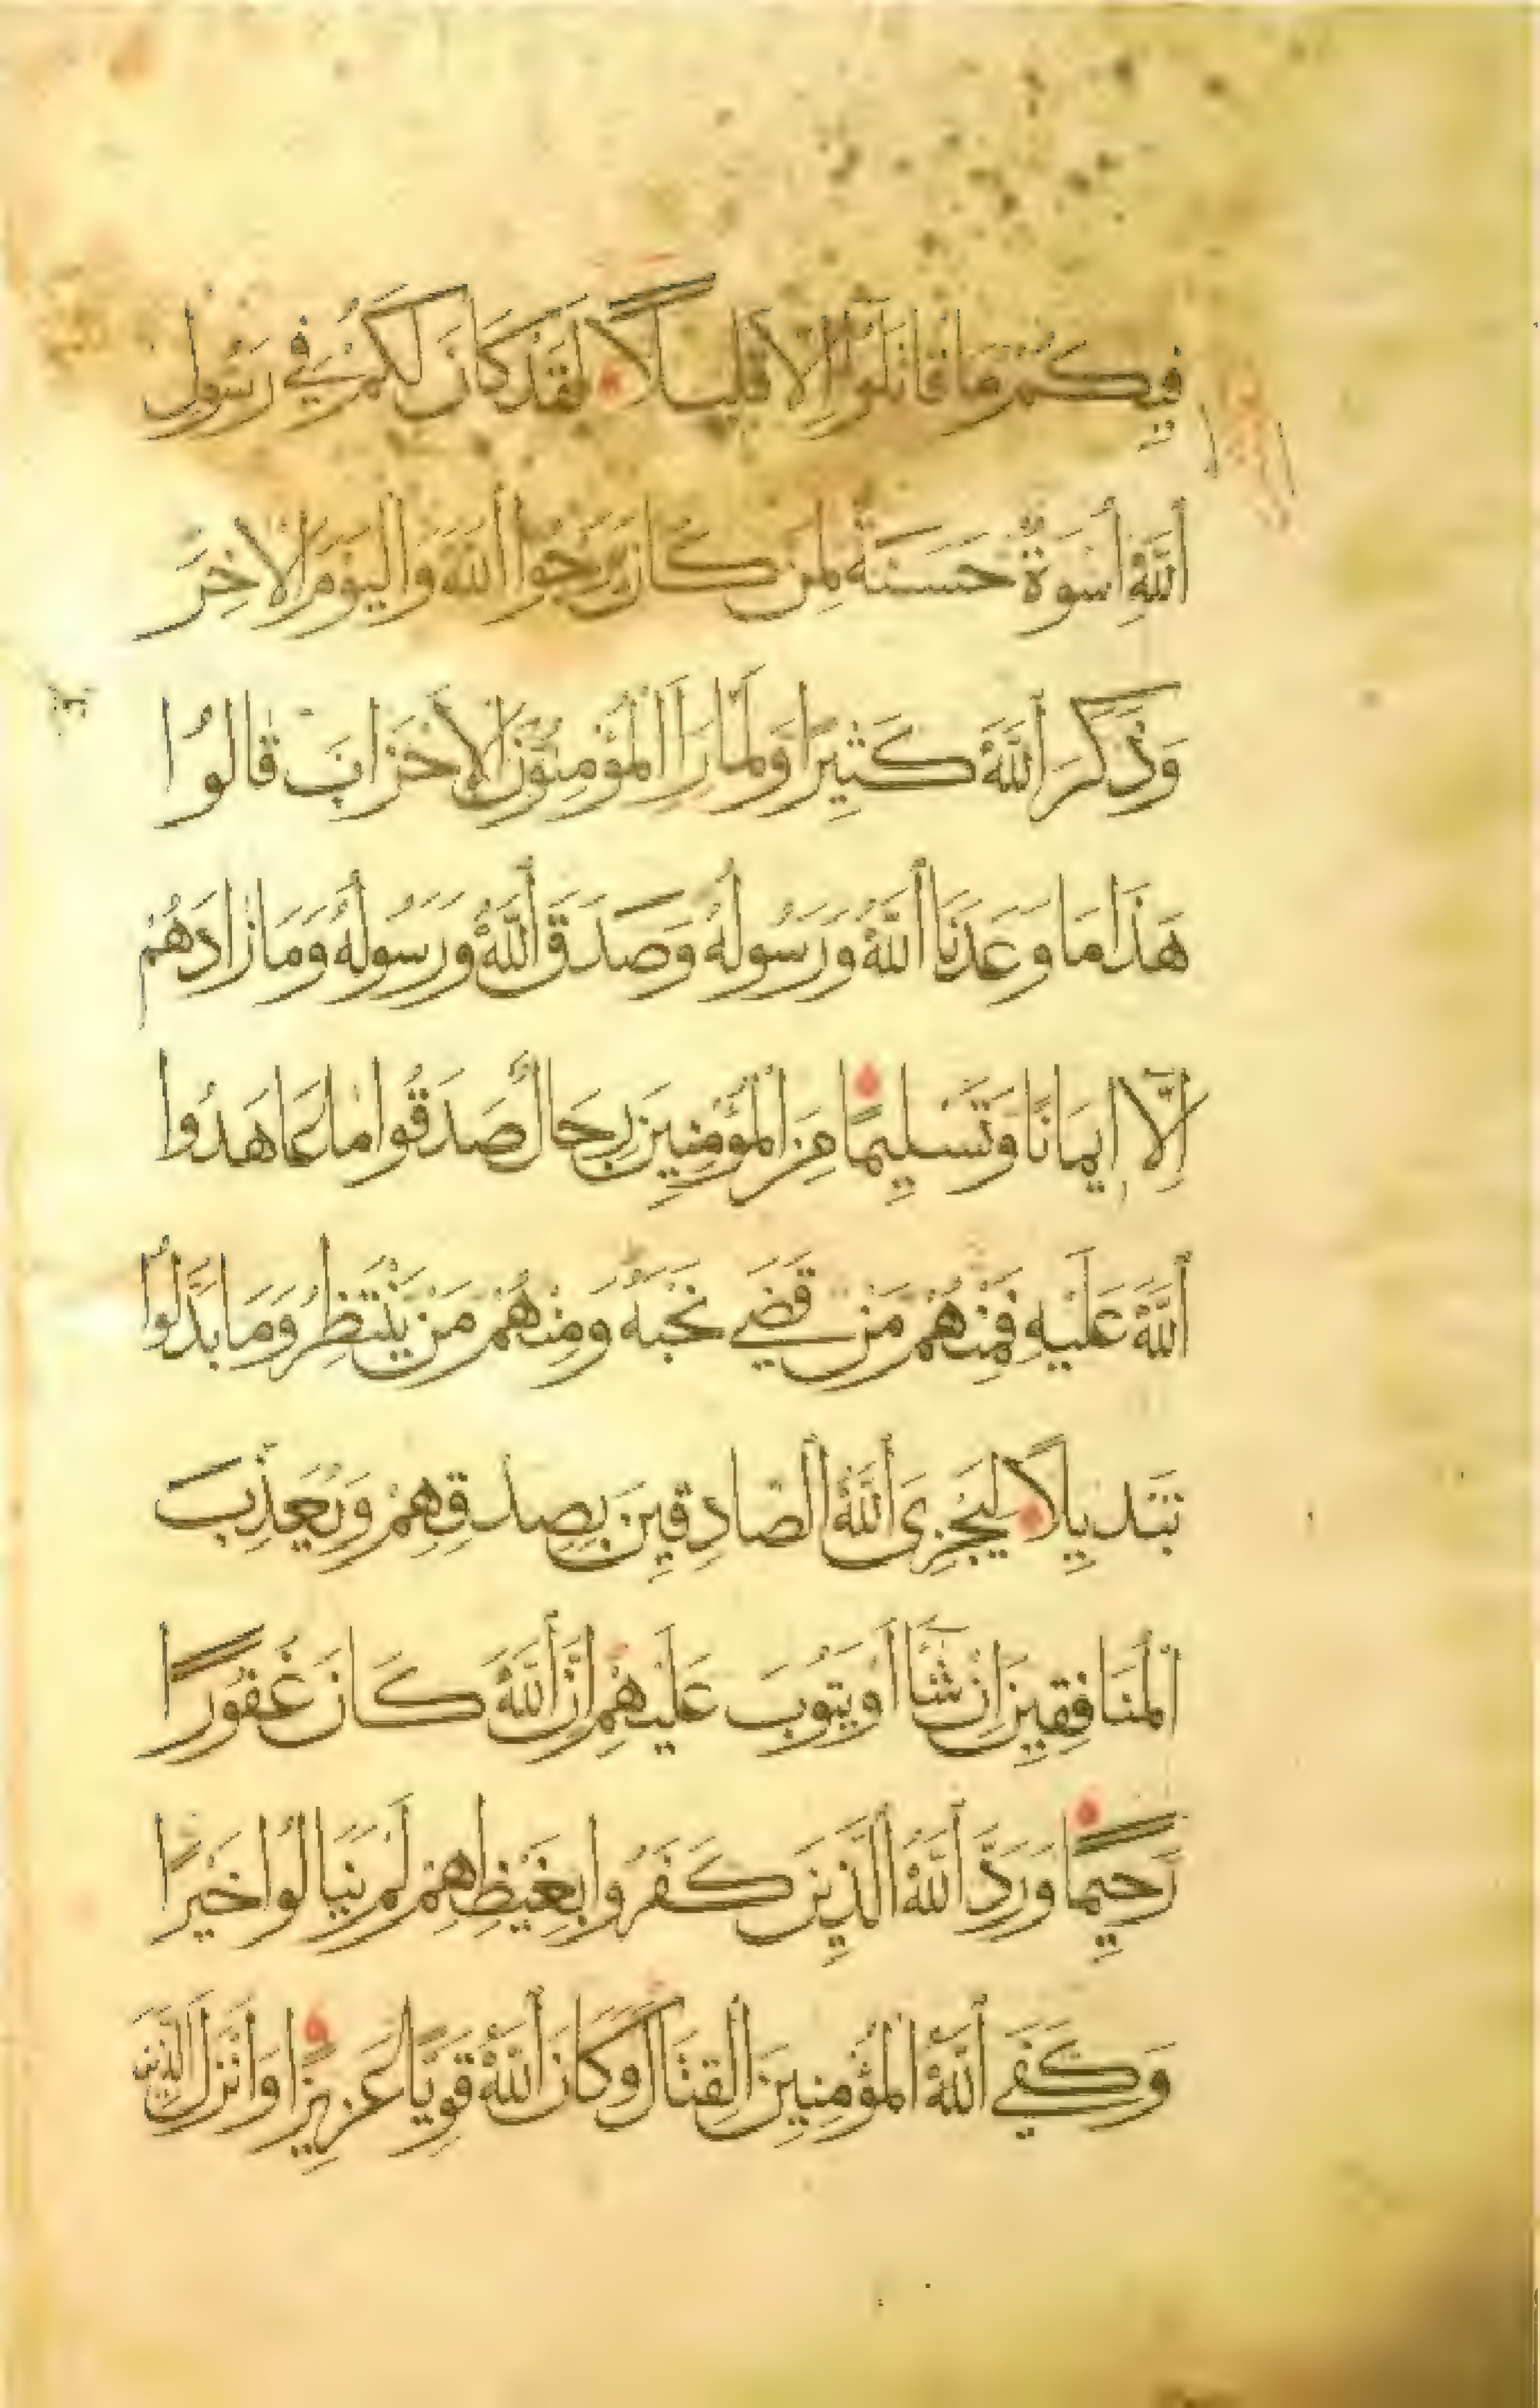 فِيكُمْ مَا قَاتَلُوا إِلَّا قَلِيلًا لَقَدْ كَانَ لَكُمْ فِي رَسُولِ
اللَّهِ أُسْوَةٌ حَسَنَةٌ لِمَن كَانَ يَرْجُوا اللَّهَ وَالْيَوْمَ الْآخِرَ
وَذَكَرَ اللَّهَ كَثِيرًا وَلَمَّا رَأَ الْمُؤْمِنُونَ الْأَحْزَابَ قَالُوا
هَذَا مَا وَعَدَنَا اللَّهُ وَرَسُولُهُ وَصَدَقَ اللَّهُ وَرَسُولُهُ وَمَا زَادَهُمْ
إِلَّا إِيمَانًا وَتَسْلِيمًا مِنَ الْمُؤْمِنِينَ رِجَالٌ صَدَقُوا مَا عَاهَدُوا
اللَّهَ عَلَيْهِ فَمِنْهُمْ مَنْ قَضَى نَحْبَهُ وَمِنْهُمْ مَنْ يَنْتَظِرُ وَمَا بَدَّلُوا
تَبْدِيلًا لِيَجْزِيَ اللَّهُ الصَّادِقِينَ بِصِدْقِهِمْ وَيُعَذِّبَ
الْمُنَافِقِينَ إِنْ شَاءَ أَوْ يَتُوبَ عَلَيْهِمْ إِنَّ اللَّهَ كَانَ غَفُورًا
رَحِيمًا وَرَدَّ اللَّهُ الَّذِينَ كَفَرُوا بِغَيْظِهِمْ لَمْ يَنَالُوا خَيْرًا
وَكَفَى اللَّهُ الْمُؤْمِنِينَ الْقِتَالَ وَكَانَ اللَّهُ قَوِيًّا عَزِيزًا وَأَنْزَلَ الَّذِينَ